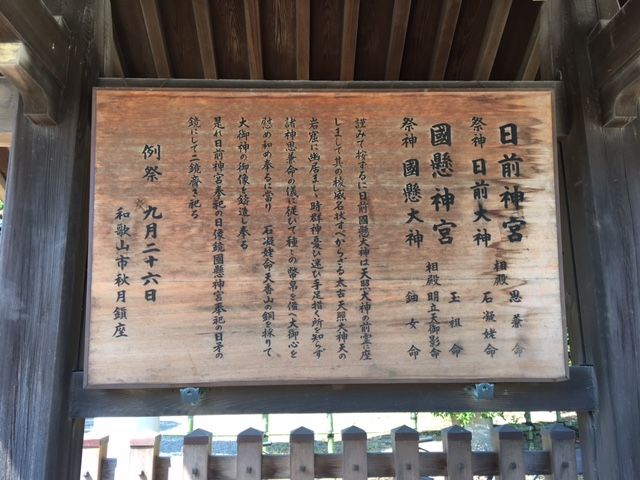 日前神宮
祭神 日前大神
相殿 思兼命
石凝姥命
國懸神宮
祭神 國懸大神
相殿 玉祖命
明立天御影命
鈿女命
謹みて按するに日前國懸大神は天照大神の前霊に座
しまして其の稜威名状すべからざる太古天照大神天の
岩窟に幽居ましゝ時群神憂ひ迷ひ手足措く所を知らず
諸神思兼命の議に従ひて種々の幣帛を備へ大御心を
慰め和め奉るに當り 石凝姥命天香山の銅を採りて
大御神の御像を鋳造し奉る
是れ日前神宮奉祀の日像鏡國懸神宮奉祀の日矛の
鏡にして二鏡齋き祀る
例祭 九月二十六日
和歌山市秋月鎮座